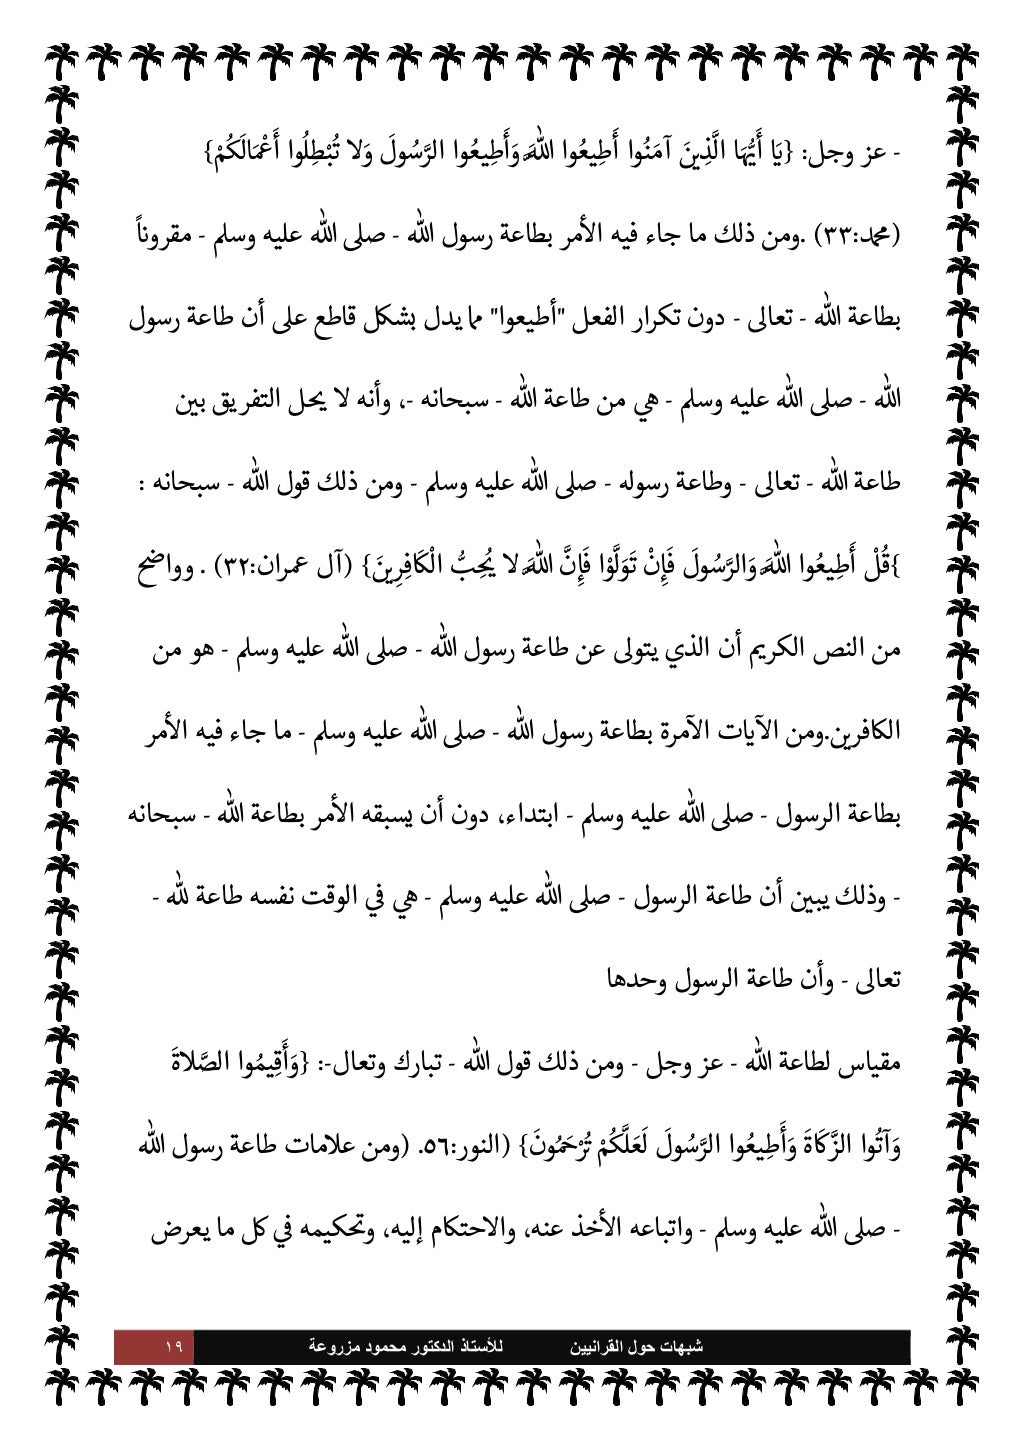 - عز وجل: {يَا أَيُّهَا الَّذِينَ آمَنُوا أَطِيعُوا اللَّهَ وَأَطِيعُوا الرَّسُولَ وَلا تُبْطِلُوا أَعْمَالَكُمْ}
(محمد:٣٣) .ومن ذلك ما جاء فيه الأمر بطاعة رسول الله - صلى الله عليه وسلم - مقروناً
بطاعة الله - تعالى - دون تكرار الفعل "أطيعوا" مما يدل بشكل قاطع على أن طاعة رسول
الله - صلى الله عليه وسلم - هي من طاعة الله - سبحانه -، وأنه لا يحل التفريق بين
طاعة الله - تعالى - وطاعة رسوله - صلى الله عليه وسلم - ومن ذلك قول الله - سبحانه :
}قُلْ أَطِيعُوا اللَّهَ وَالرَّسُولَ فَإِنْ تَوَلَّوْا فَإِنَّ اللَّهَ لا يُحِبُّ الْكَافِرِينَ} (آل عمران:٣٢) . وواضح
من النص الكريم أن الذي يتولى عن طاعة رسول الله - صلى الله عليه وسلم - هو من
الكافرين.ومن الآيات الآمرة بطاعة رسول الله - صلى الله عليه وسلم - ما جاء فيه الأمر
بطاعة الرسول - صلى الله عليه وسلم - ابتداء، دون أن يسبقه الأمر بطاعة الله - سبحانه
- وذلك يبين أن طاعة الرسول - صلى الله عليه وسلم - هي في الوقت نفسه طاعة لله -
تعالى - وأن طاعة الرسول وحدها
مقياس لطاعة الله - عز وجل - ومن ذلك قول الله - تبارك وتعال-: {وَأَقِيمُوا الصَّلاةَ
وَآتُوا الزَّكَاةَ وَأَطِيعُوا الرَّسُولَ لَعَلَّكُمْ تُرْحَمُونَ} (النور:٥٦. (ومن علامات طاعة رسول الله
- صلى الله عليه وسلم - واتباعه الأخذ عنه، والاحتكام إليه، وتحكيمه في كل ما يعرض
شبهات حول القرانيين للأستاذ الدكتور محمود مزروعة ١٩